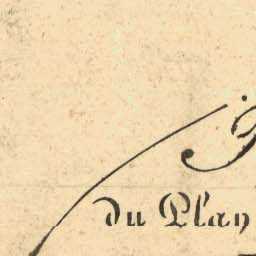 du Plan